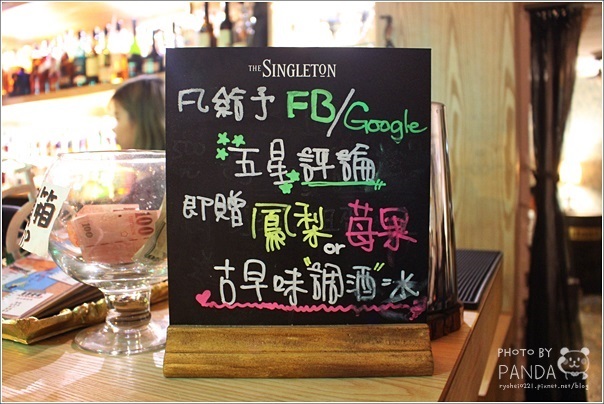 THE SINGLETON
凡給予 FB/Google
五星評論
即贈 鳳梨 or 莓果
古早味"調酒"冰
箱
100
PHOTO BY
PANDA
ryohei9221.pixnet.net/blog